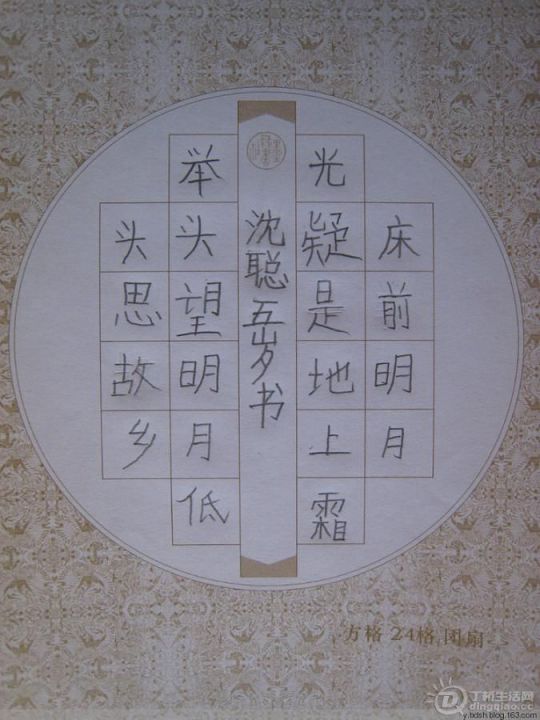 床前明月
光疑是地上霜
沈聪五岁书
举头望明月低
头思故乡
方格 24格 团扇
丁桥生活网
dingqiao.cc
y.bdsh.blog.163.com